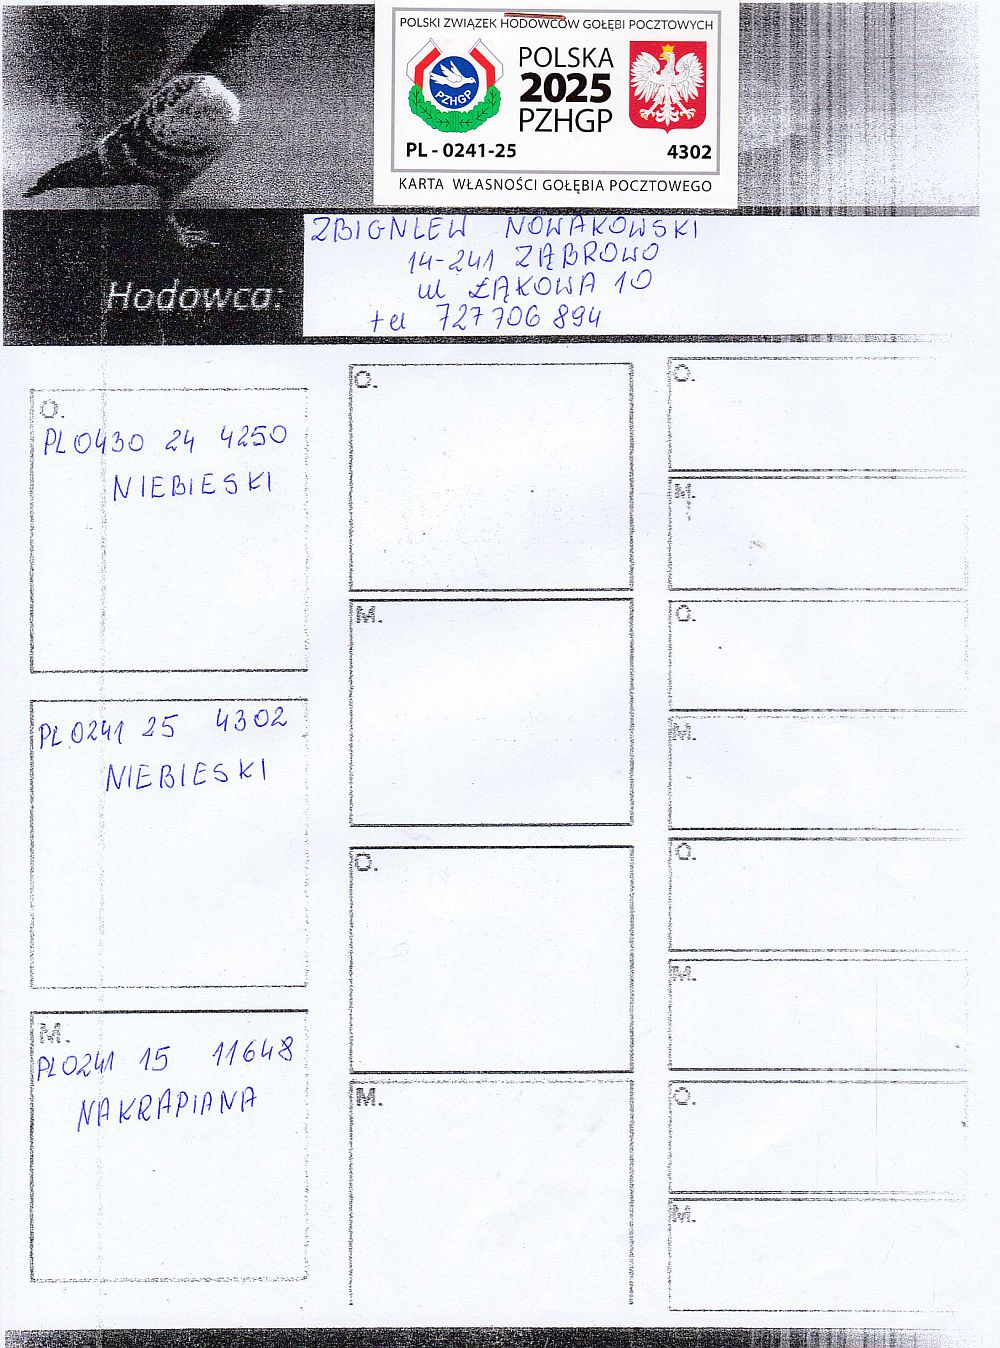 POLSKI ZWIĄZEK HODOWCÓW GOŁĘBI POCZTOWYCH
PZHGP
POLSKA
2025
PZHGP
PL - 0241-25
4302
KARTA WŁASNOŚCI GOŁĘBIA POCZTOWEGO
Hodowca:
ZBIGNIEW NOWAKOWSKI
14-241 ZĄBROWO
ul ŁĄKOWA 10
tel 727706894
O.
PL0430 24 4250
NIEBIESKI
PL0241 25 4302
NIEBIESKI
M.
PL0241 15 11648
NAKRAPIANA
O.
M.
O.
M.
O.
M.
O.
M.
O.
M.
O.
M.